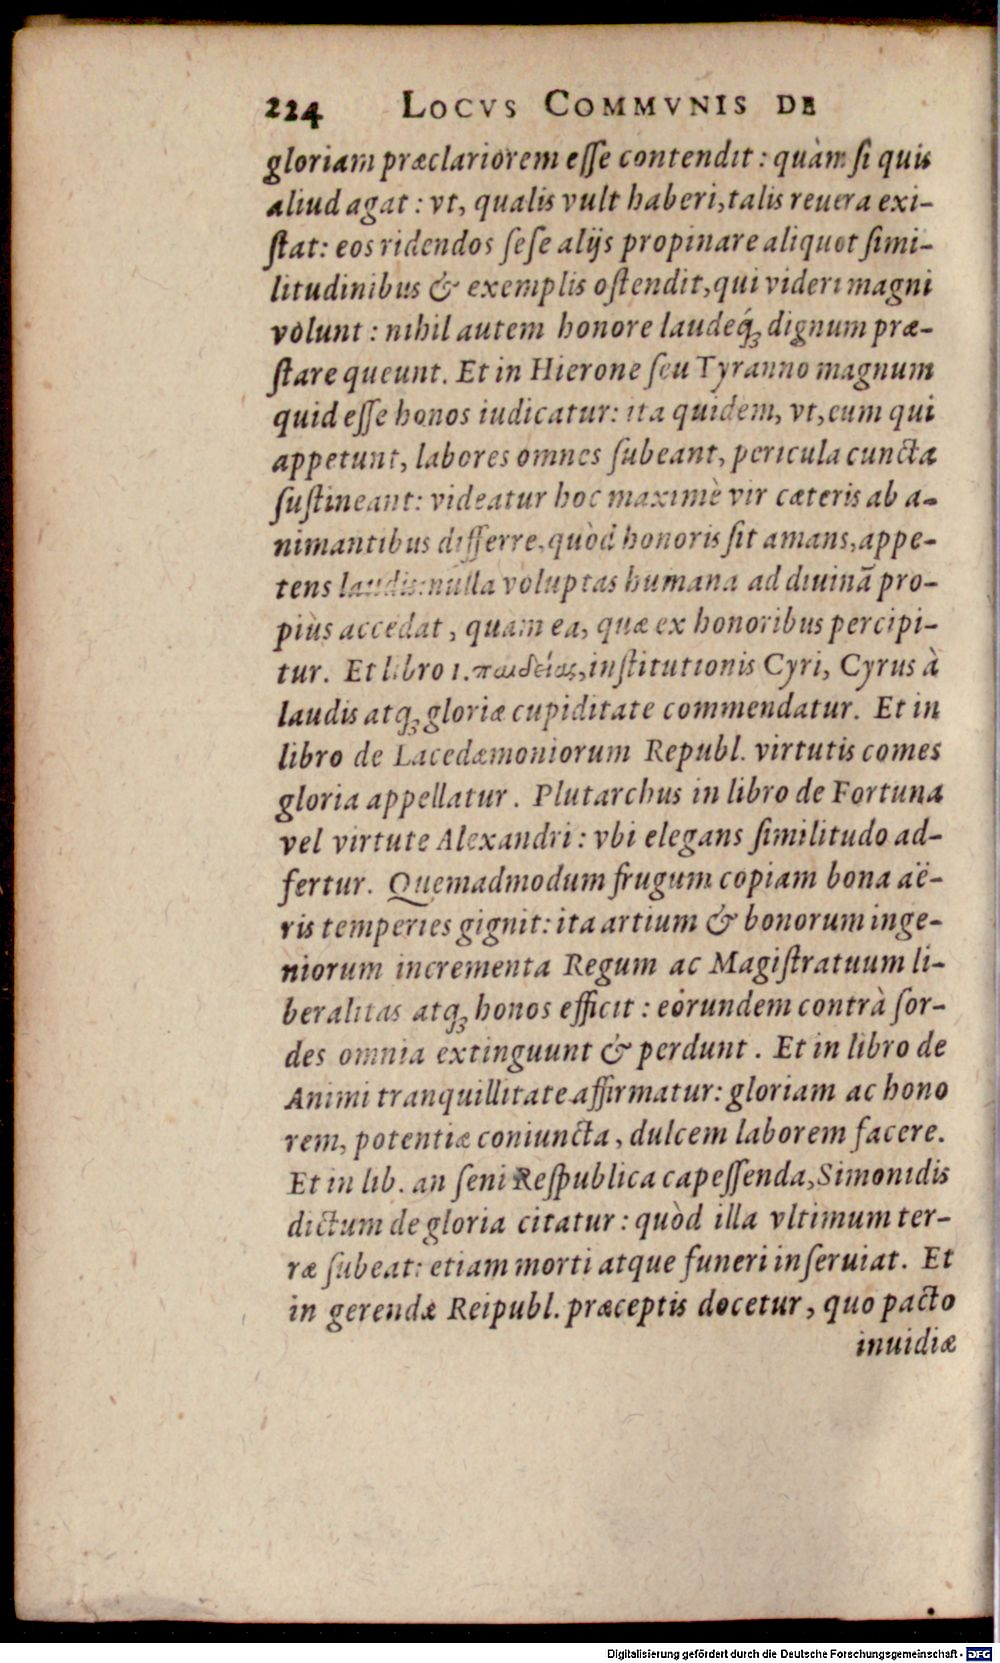 224 LOCVS COMMVNIS DE
gloriam præclariorem eſſe contendit : quàm ſi quis
aliud agat : vt, qualis vult haberi, talis reuera exi-
ſtat: eos ridendos ſeſe alijs propinare aliquot ſimi-
litudinibus & exemplis oſtendit, qui videri magni
volunt : nihil autem honore laudeq́ꝫ dignum præ-
ſtare queunt. Et in Hierone ſeu Tyranno magnum
quid eſſe honos iudicatur: ita quidem, vt, eum qui
appetunt, labores omnes ſubeant, pericula cuncta
ſuſtineant: videatur hoc maximè vir cæteris ab a-
nimantibus differre, quòd honoris ſit amans, appe-
tens laudis: nulla voluptas humana ad diuinā pro-
piùs accedat , quam ea, quæ ex honoribus percipi-
tur. Et libro 1. παιδείας, inſtitutionis Cyri, Cyrus à
laudis atqꝫ gloriæ cupiditate commendatur. Et in
libro de Lacedæmoniorum Republ. virtutis comes
gloria appellatur . Plutarchus in libro de Fortuna
vel virtute Alexandri : vbi elegans ſimilitudo ad-
fertur. Quemadmodum frugum copiam bona aë-
ris temperies gignit: ita artium & bonorum inge-
niorum incrementa Regum ac Magiſtratuum li-
beralitas atqꝫ honos efficit : eorundem contrà ſor-
des omnia extinguunt & perdunt . Et in libro de
Animi tranquillitate affirmatur: gloriam ac hono
rem, potentiæ coniuncta , dulcem laborem facere.
Et in lib. an ſeni Reſpublica capeſſenda, Simonidis
dictum de gloria citatur : quòd illa vltimum ter-
ræ ſubeat: etiam morti atque funeri inſeruiat. Et
in gerendæ Reipubl. præceptis docetur , quo pacto
inuidiæ
Digitalisierung gefördert durch die Deutsche Forschungsgemeinschaft - DFG